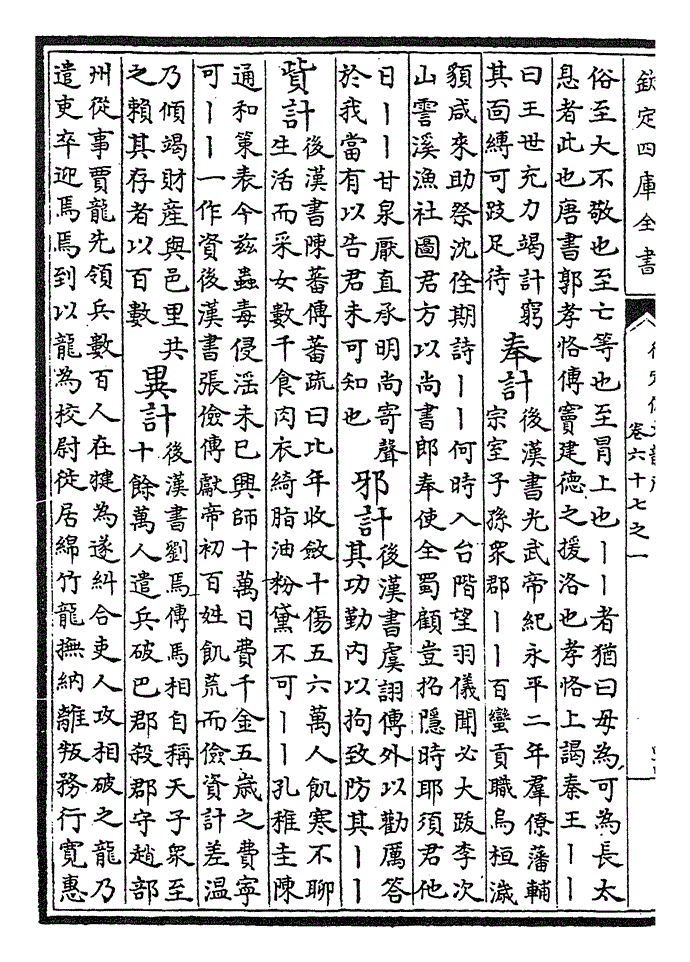 欽定四庫全書
卷六十七之一
俗至大不敬也至亡等也至冒上也丨丨者猶曰毋為可為長太
息者此也唐書郭孝恪傳竇建德之援洛也孝恪上謁秦王丨丨
曰王世充力竭計窮
其面縛可跂足待
奉計
後漢書光武帝紀永平二年羣僚藩輔
宗室子孫衆郡丨丨百蠻貢職烏桓濊
貊咸來助祭沈佺期詩丨丨何時入台階望羽儀聞必大跋李次
山霅溪漁社圖君方以尚書郎奉使全蜀顧豈招隱時耶須君他
日丨丨甘泉厭直承明尚寄聲
於我當有以告君未可知也
邪計
後漢書虞詡傳外以勸厲答
其功勤内以拘致防其丨丨
貲計
後漢書陳蕃傳蕃疏曰比年收斂十傷五六萬人飢寒不聊
生活而采女數千食肉衣綺脂油粉黛不可丨丨孔稚圭陳
通和策表今兹蟲毒侵淫未已興師十萬日費千金五歲之費寧
可丨丨一作資後漢書張儉傳獻帝初百姓飢荒而儉資計差温
乃傾竭財産與邑里共
之賴其存者以百數
異計
後漢書劉焉傳馬相自稱天子衆至
十餘萬人遣兵破巴郡殺郡守趙部
州從事賈龍先領兵數百人在犍為遂糾合吏人攻相破之龍乃
遣吏卒迎焉焉到以龍為校尉徙居綿竹龍撫納離叛務行寬惠